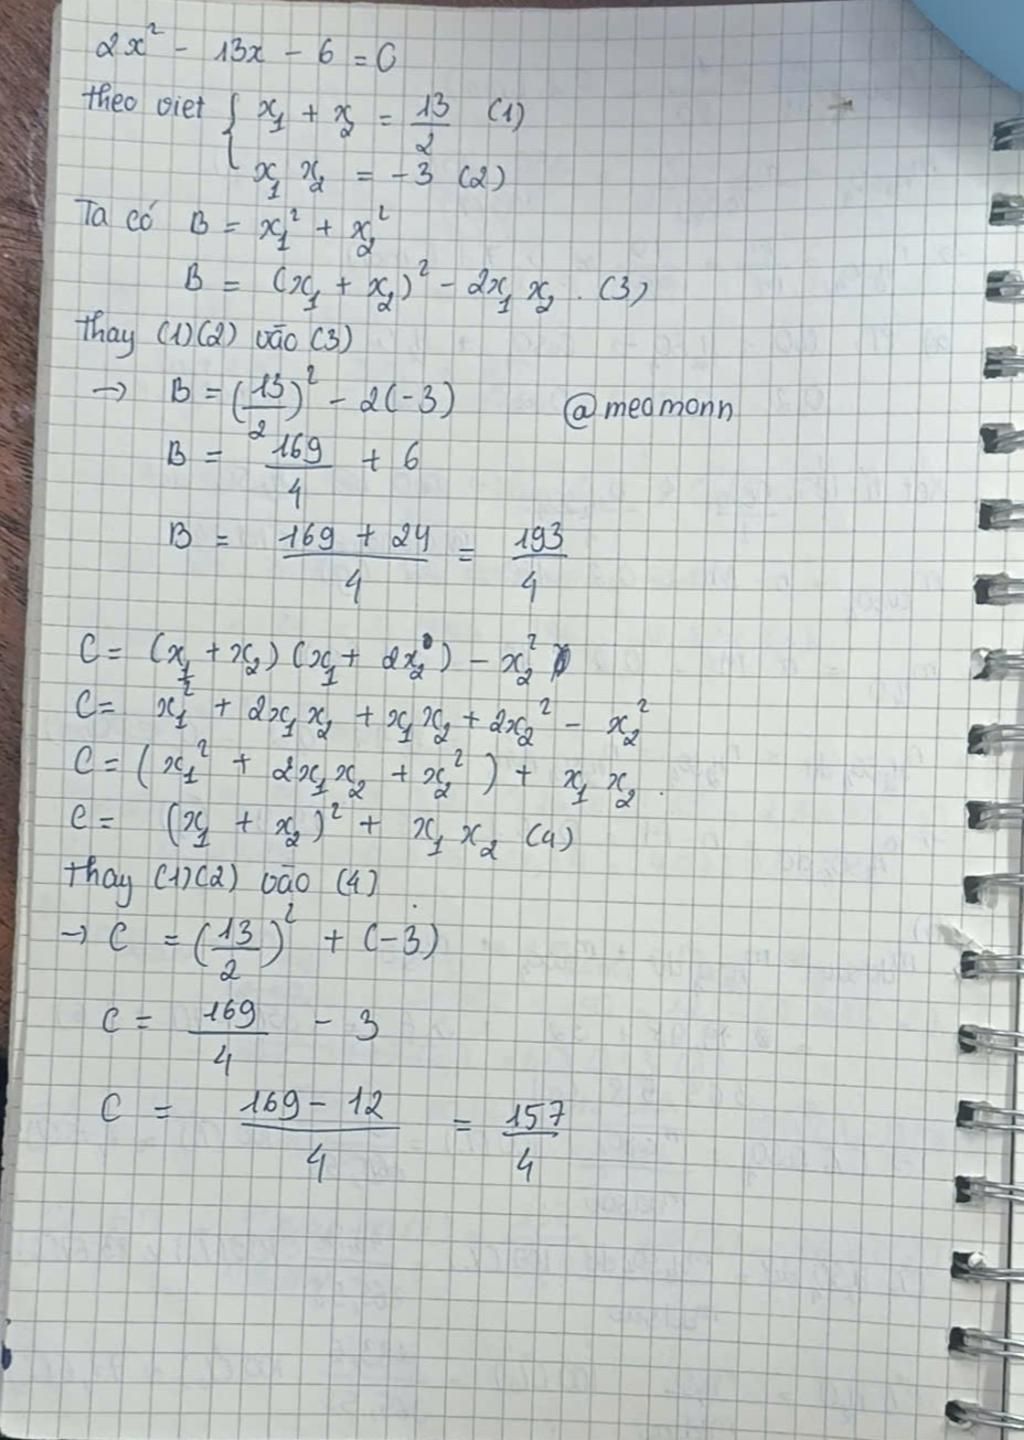 2x² - 13x - 6 = 0
theo viet { x₁ + x₂ = 13/2 (1)
x₁ x₂ = -3 (2)
Ta có B = x₁² + x₂²
B = (x₁ + x₂)² - 2x₁ x₂ . (3)
thay (1)(2) vào (3)
→ B = (13/2)² - 2(-3)
@meomonn
B = 169/4 + 6
B = (169 + 24)/4 = 193/4
C = (x₁ + x₂) (x₁ + 2x₂) - x₂²
C = x₁² + 2x₁ x₂ + x₁ x₂ + 2x₂² - x₂²
C = (x₁² + 2x₁ x₂ + x₂²) + x₁ x₂ .
C = (x₁ + x₂)² + x₁ x₂ (4)
thay (1)(2) vào (4)
→ C = (13/2)² + (-3)
C = 169/4 - 3
C = (169 - 12)/4 = 157/4